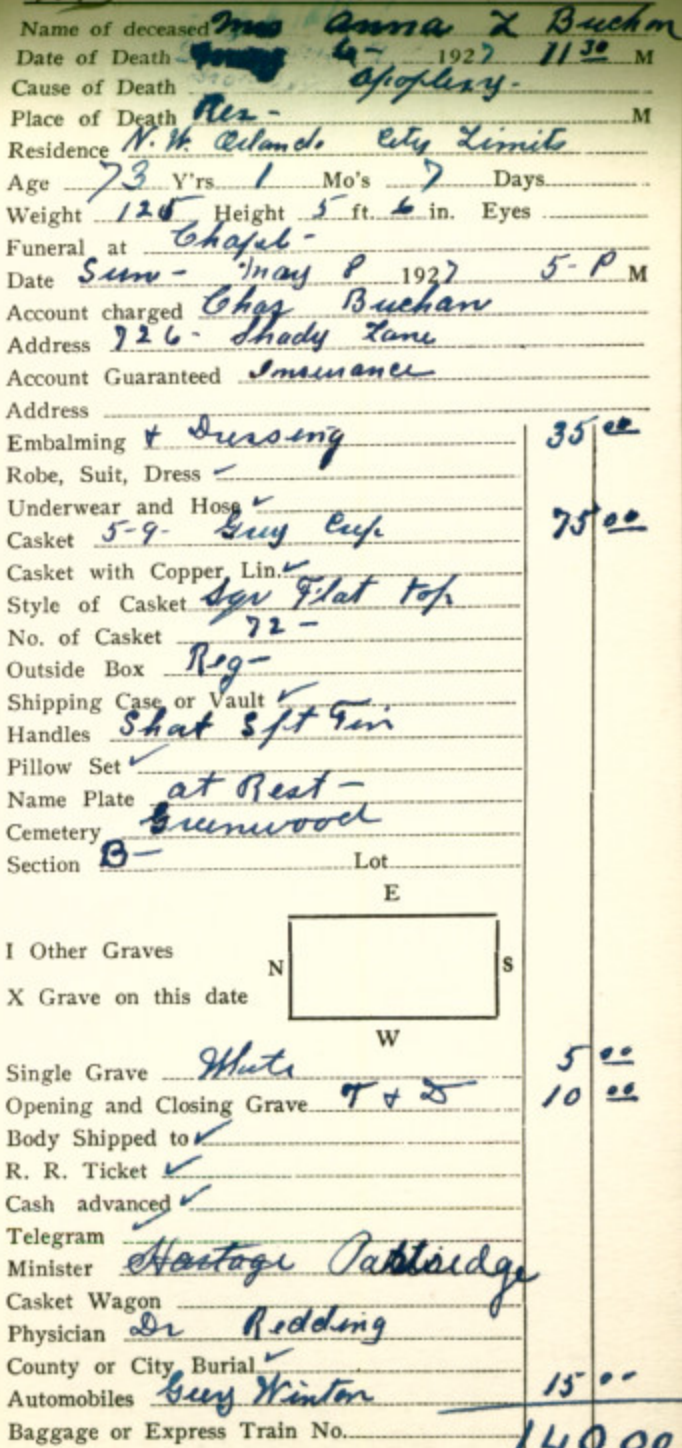 Name of deceased Mrs Anna L Buchan
Date of Death 6- 1927 11 30 M
Cause of Death Apoplexy-
Place of Death Res- M
Residence N.W. Orlando City Limits
Age 73 Y'rs 1 Mo's 7 Days
Weight 125 Height 5 ft. 6 in. Eyes
Funeral at Chapel-
Date Sun- May 8 1927 5-P M
Account charged Chas Buchan
Address 726- Shady Lane
Account Guaranteed Insurance
Address
Embalming & Dressing 35 00
Robe, Suit, Dress ✓
Underwear and Hose ✓
Casket 5-9- Grey Crep 75 00
Casket with Copper Lin. ✓
Style of Casket Sqr Flat top
No. of Casket 72-
Outside Box Reg-
Shipping Case or Vault ✓
Handles Shat Sft Tin
Pillow Set ✓
Name Plate at Rest-
Cemetery Greenwood
Section B- Lot
E
I Other Graves
N S
X Grave on this date
W
Single Grave White 5 00
Opening and Closing Grave T & D 10 00
Body Shipped to ✓
R. R. Ticket ✓
Cash advanced ✓
Telegram ✓
Minister Partridge
Casket Wagon
Physician Dr Redding
County or City Burial ✓
Automobiles Grey Winton 15 00
Baggage or Express Train No. 140 00